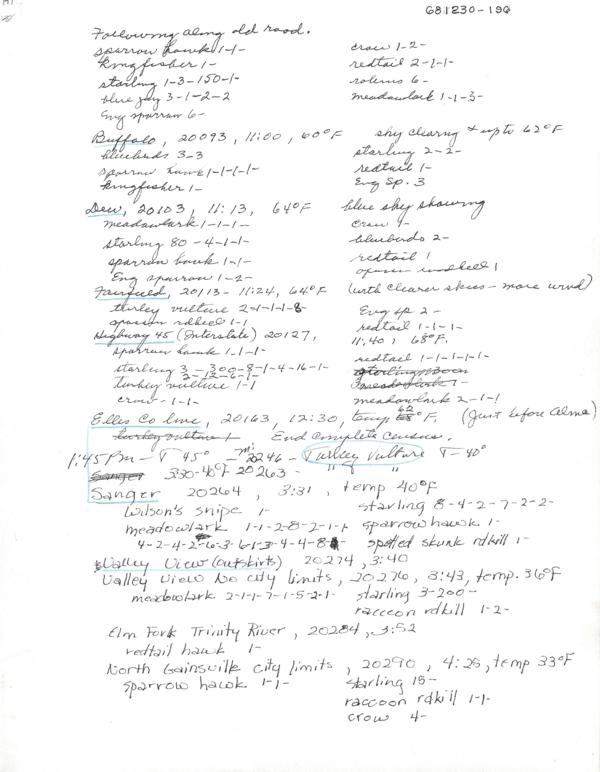 681230-196
Following along old road.
sparrow hawk 1-1- crow 1-2-
kingfisher 1- redtail 2-1-1-
starling 1-3-150-1- robins 6-
blue jay 3-1-2-2 meadowlark 1-1-3-
Eng sparrow 6-
Buffalo, 20093, 11:00, 60°F sky clearing & up to 62°F
bluebirds 3-3 starling 2-2-
sparrow hawk 1-1-1-1- redtail 1-
kingfisher 1- Eng Sp. 3
Dew, 20103, 11:13, 64°F blue sky showing
meadowlark 1-1-1- crow 4-
starling 80-4-1-1- bluebirds 2-
sparrow hawk 1-1- redtail 1
Eng sparrow 1-2- opossum rdkill 1
Fairfield, 20113- 11:24, 64°F (with clearer skies - more wind)
turkey vulture 2-1-1-1-8- Eng sp 2-
opossum rdkill 1-1 redtail 1-1-1-
Highway 45 (Interstate) 20127, 11:40, 68°F.
sparrow hawk 1-1-1- redtail 1-1-1-1-1-
starling 3-300-8-1-4-16-1-
2-12-6-1-
turkey vulture 1-1 meadowlark 1-
crow 1-1- meadowlark 2-1-1
Ellis Co line, 20163, 12:30, temp 62°F. (Just before Alma)
turkey vulture 1 End complete census.
1:45 Pm - T 45° mi. 20246 - Turkey Vulture T- 40°
Sanger 3:30-40°F 20263 - " "
Sanger 20264, 3:31, temp 40°F
Wilson's snipe 1- starling 8-4-2-7-2-2-
meadowlark 1-1-2-8-2-1-1- sparrow hawk 1-
4-2-4-2-6-3-6-1-3-4-4-8- spotted skunk rdkill 1-
Valley View (outskirts) 20274, 3:40
Valley View No city limits, 20276, 3:43, temp. 36°F
meadowlark 2-1-1-7-1-5-2-1- starling 3-200-
raccoon rdkill 1-2-
Elm Fork Trinity River, 20284, 3:52
redtail hawk 1-
North Gainsville city limits, 20290, 4:25, temp 33°F
sparrow hawk 1-1- starling 15-
raccoon rdkill 1-1-
crow 4-